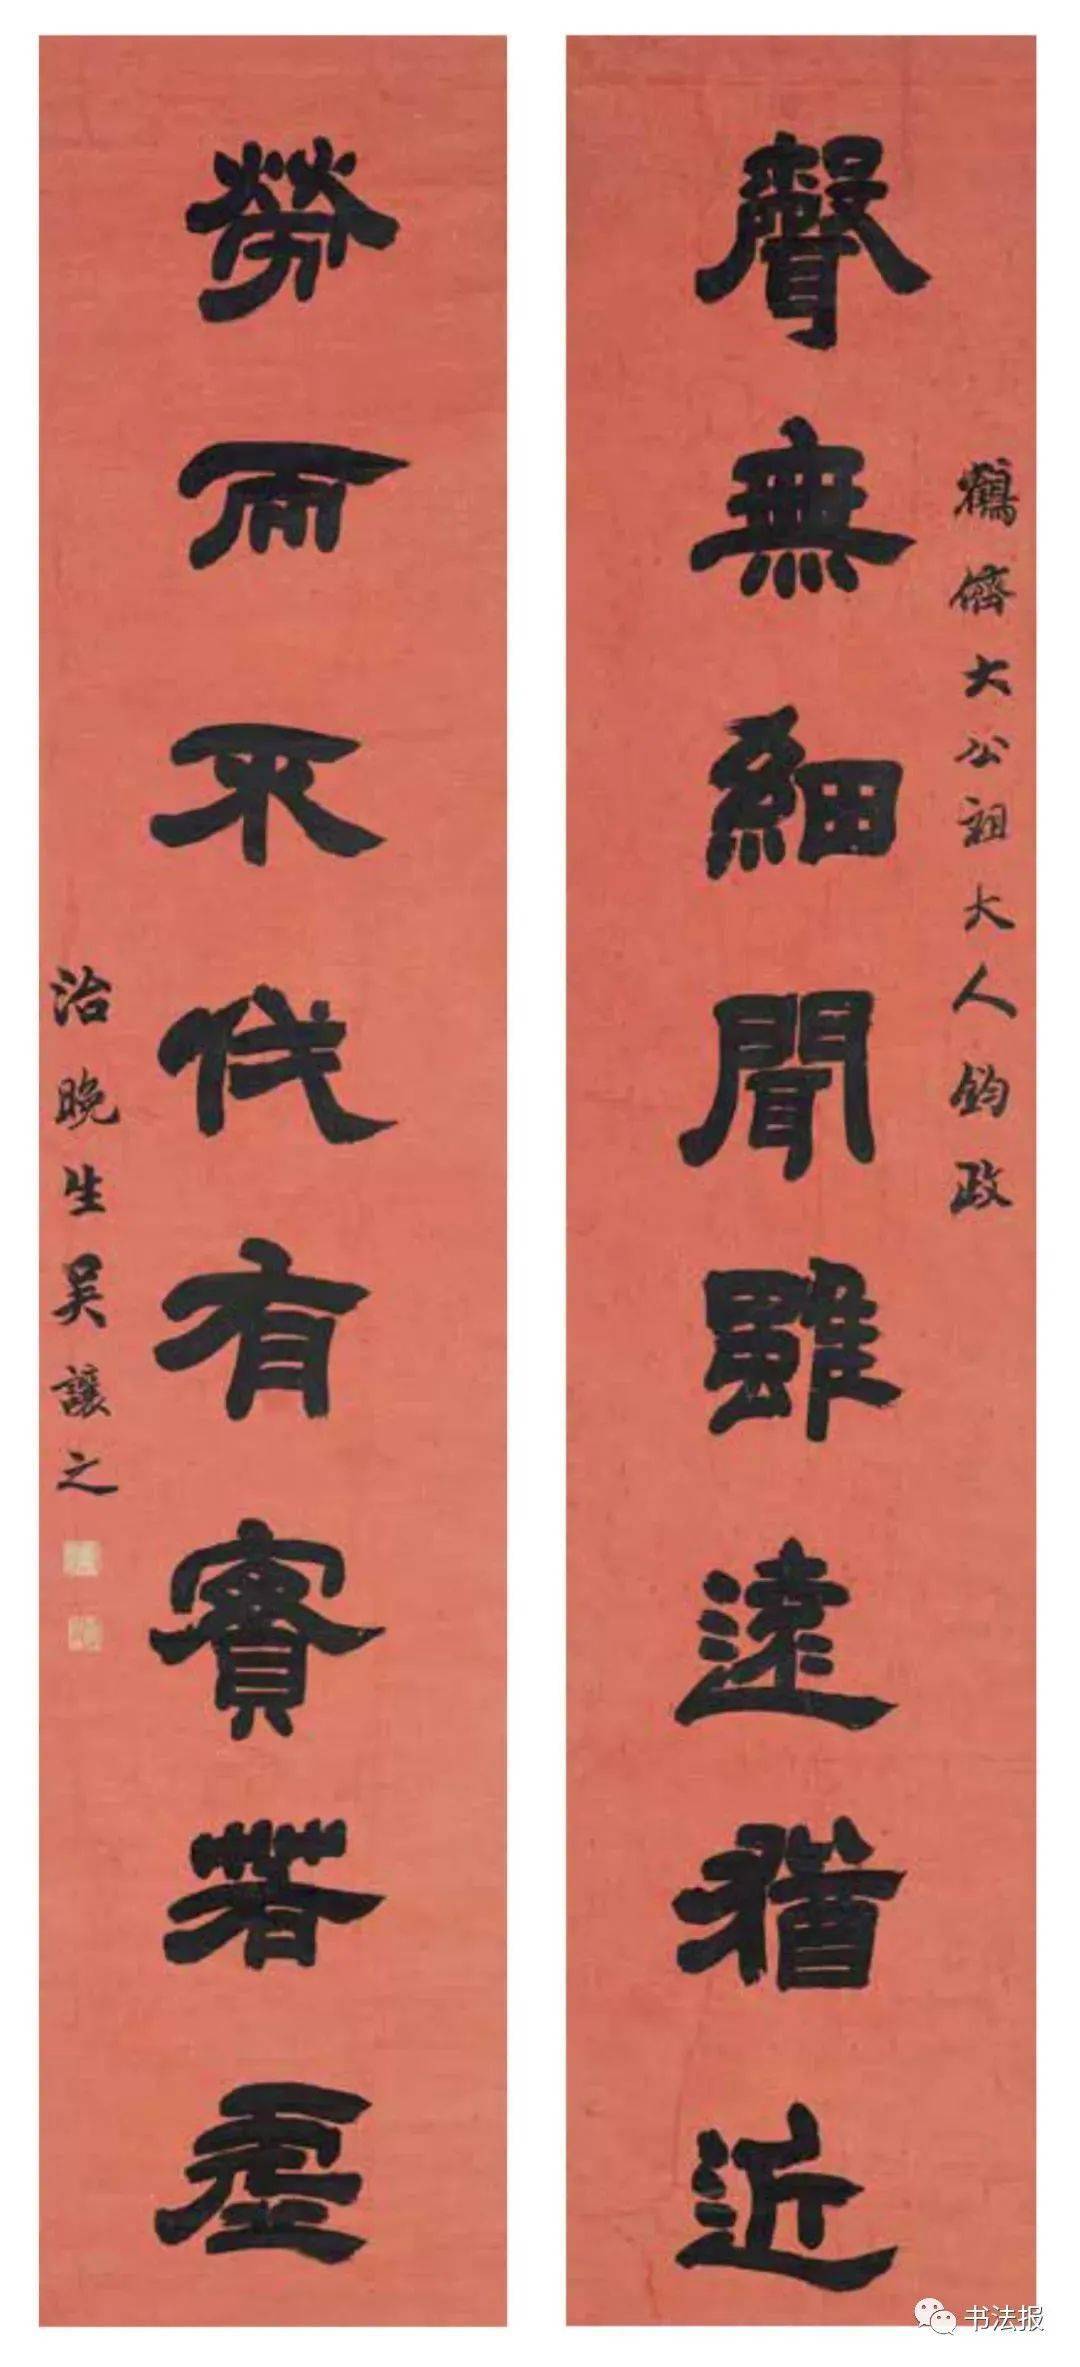 聲無細聞雖遠猶近
鶴儕大公祖大人鈞政
勞而不伐有實若虛
治晚生吳讓之
书法报